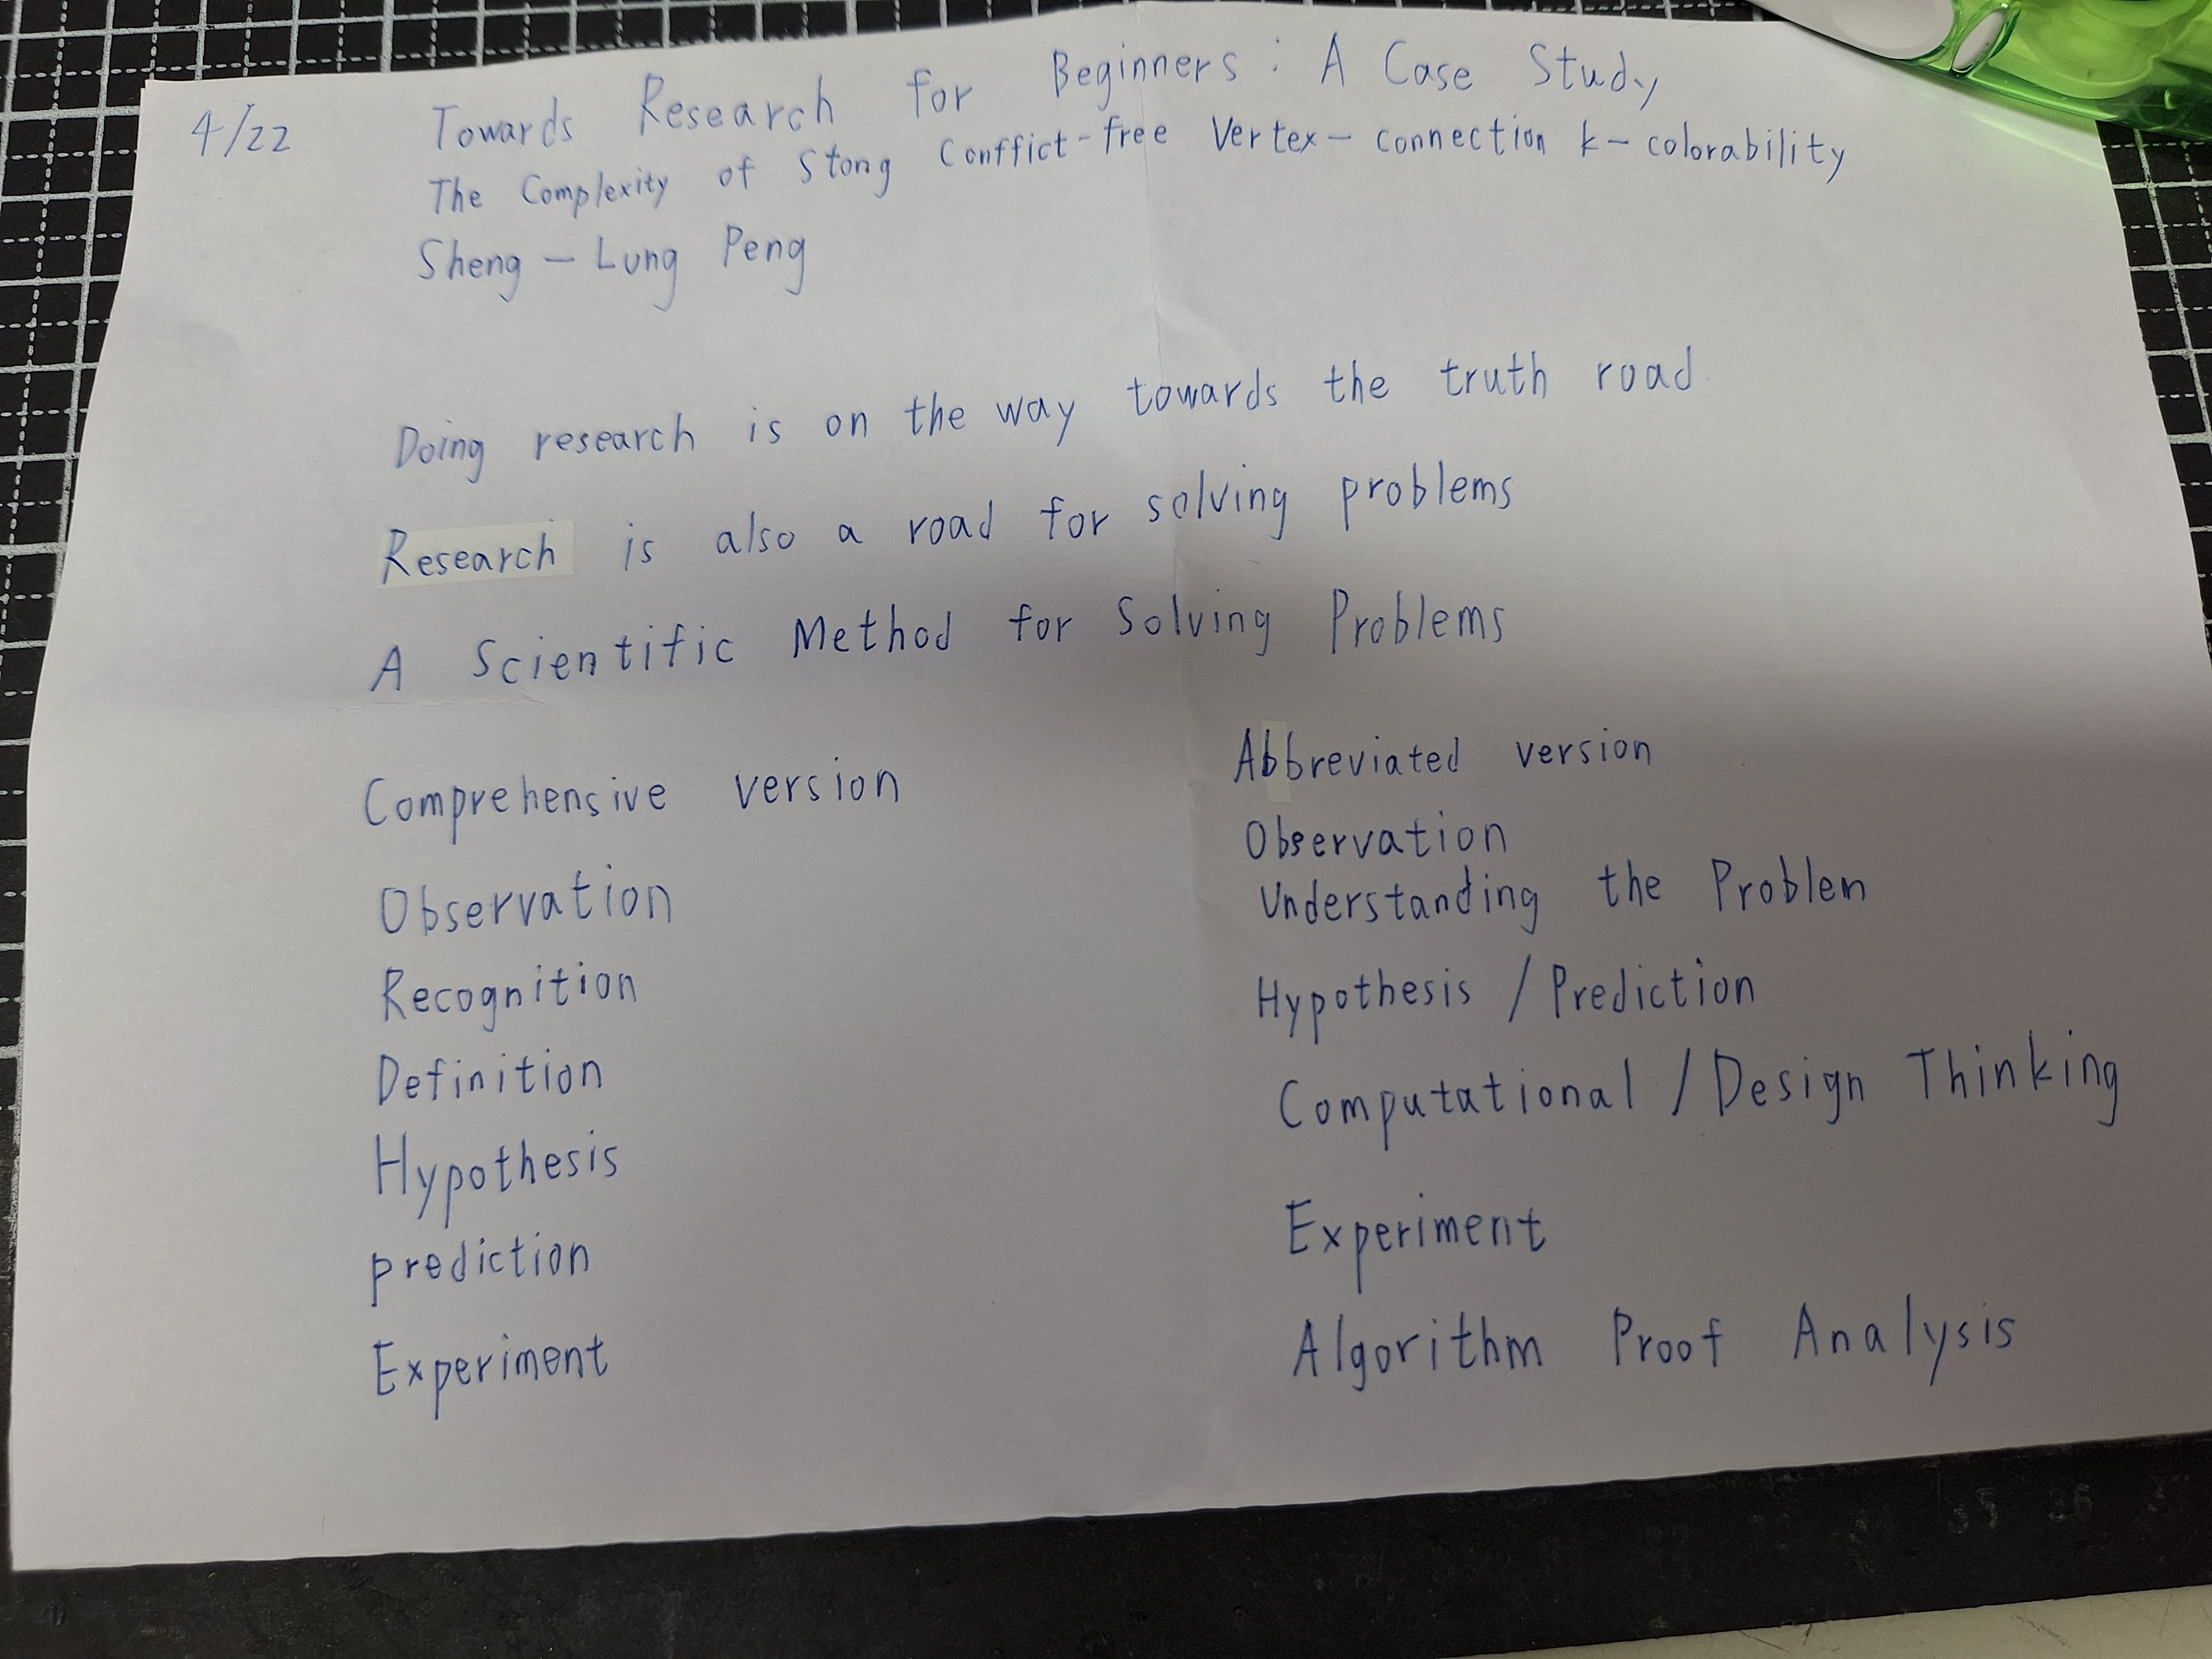 4/22
Towards Research for Beginners : A Case Study
The Complexity of Stong Conffict-free Vertex-connection k-colorability
Sheng-Lung Peng
Doing research is on the way towards the truth road.
Research is also a road for solving problems
A Scientific Method for Solving Problems
Comprehensive version
Observation
Recognition
Definition
Hypothesis
prediction
Experiment
Abbreviated version
Observation
Understanding the Problem
Hypothesis / Prediction
Computational / Design Thinking
Experiment
Algorithm Proof Analysis